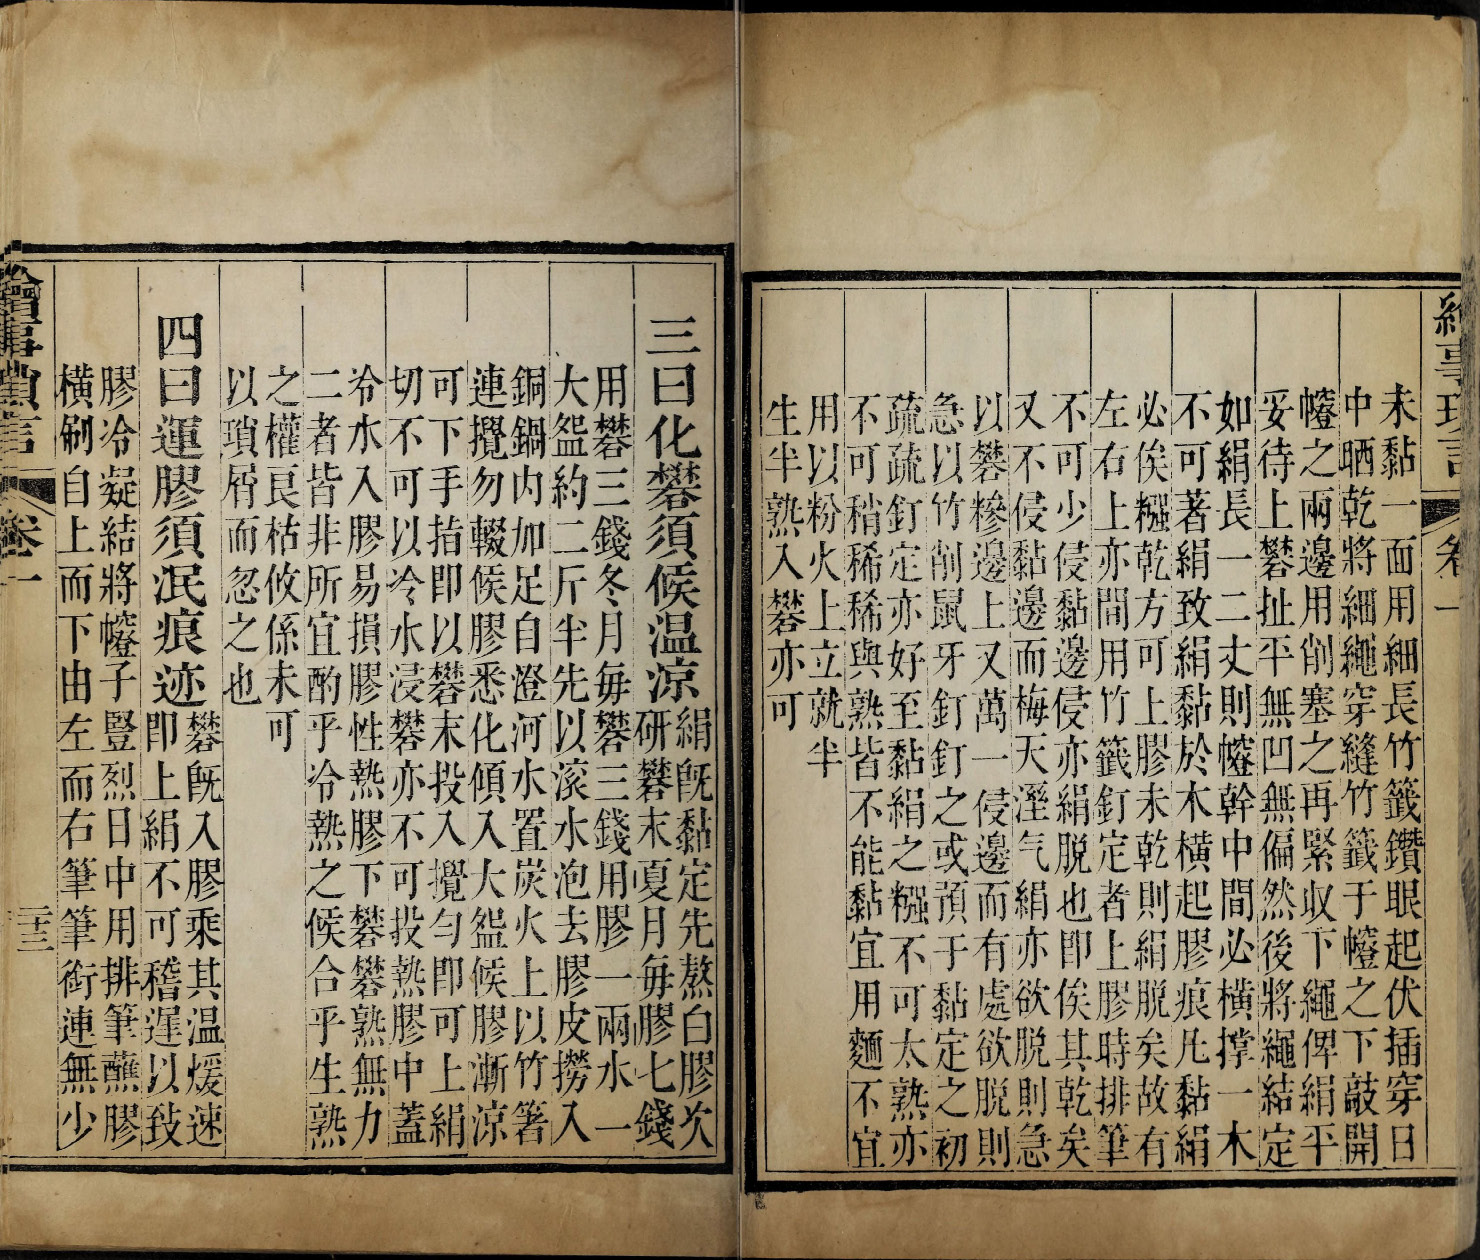 繪事瑣言 卷一
未黏一面用細長竹籤鑽眼起伏插穿日
中晒乾將細繩穿縫竹籤于㡧之下敲開
㡧之兩邊用削塞之再緊收下繩俾絹平
妥待上礬扯平無凹無偏然後將繩結定
如絹長一二丈則㡧幹中間必橫撑一木
不可著絹致絹黏於木橫起膠痕凡黏絹
必俟糨乾方可上膠未乾則絹脫矣故有
左右上亦間用竹籤釘定者上膠時排筆
不可少侵黏邊侵亦絹脫也即俟其乾矣
又不侵黏邊而梅天溼气絹亦欲脫則急
以礬糝邊上又萬一侵邊而有處欲脫則
急以竹削鼠牙釘釘之或預于黏定之初
疏疏釘定亦好至黏絹之糨不可太熟亦
不可稍稀稀與熟皆不能黏宜用麵不宜
用以粉火上立就半
生半熟入礬亦可
三曰化礬須候温凉
絹旣黏定先熬白膠次
研礬末夏月每膠七錢
用礬三錢冬月每礬三錢用膠一兩水一
大盌約二斤半先以滚水泡去膠皮撈入
銅鍋内加足自澄河水置炭火上以竹箸
連攪勿輟候膠悉化傾入大盌候膠漸凉
可下手指即以礬末投入攪勻即可上絹
切不可以冷水浸礬亦不可投熱膠中蓋
冷水入膠易損膠性熱膠下礬礬熟無力
二者皆非所宜酌乎冷熱之候合乎生熟
之權艮枯攸係未可
以瑣屑而忽之也
四曰運膠須泯痕迹
礬旣入膠乘其温煖速
即上絹不可稽遲以致
膠冷凝結將㡧子豎烈日中用排筆蘸膠
橫刷自上而下由左而右筆筆銜連無少
繪事瑣言 卷一 二十三